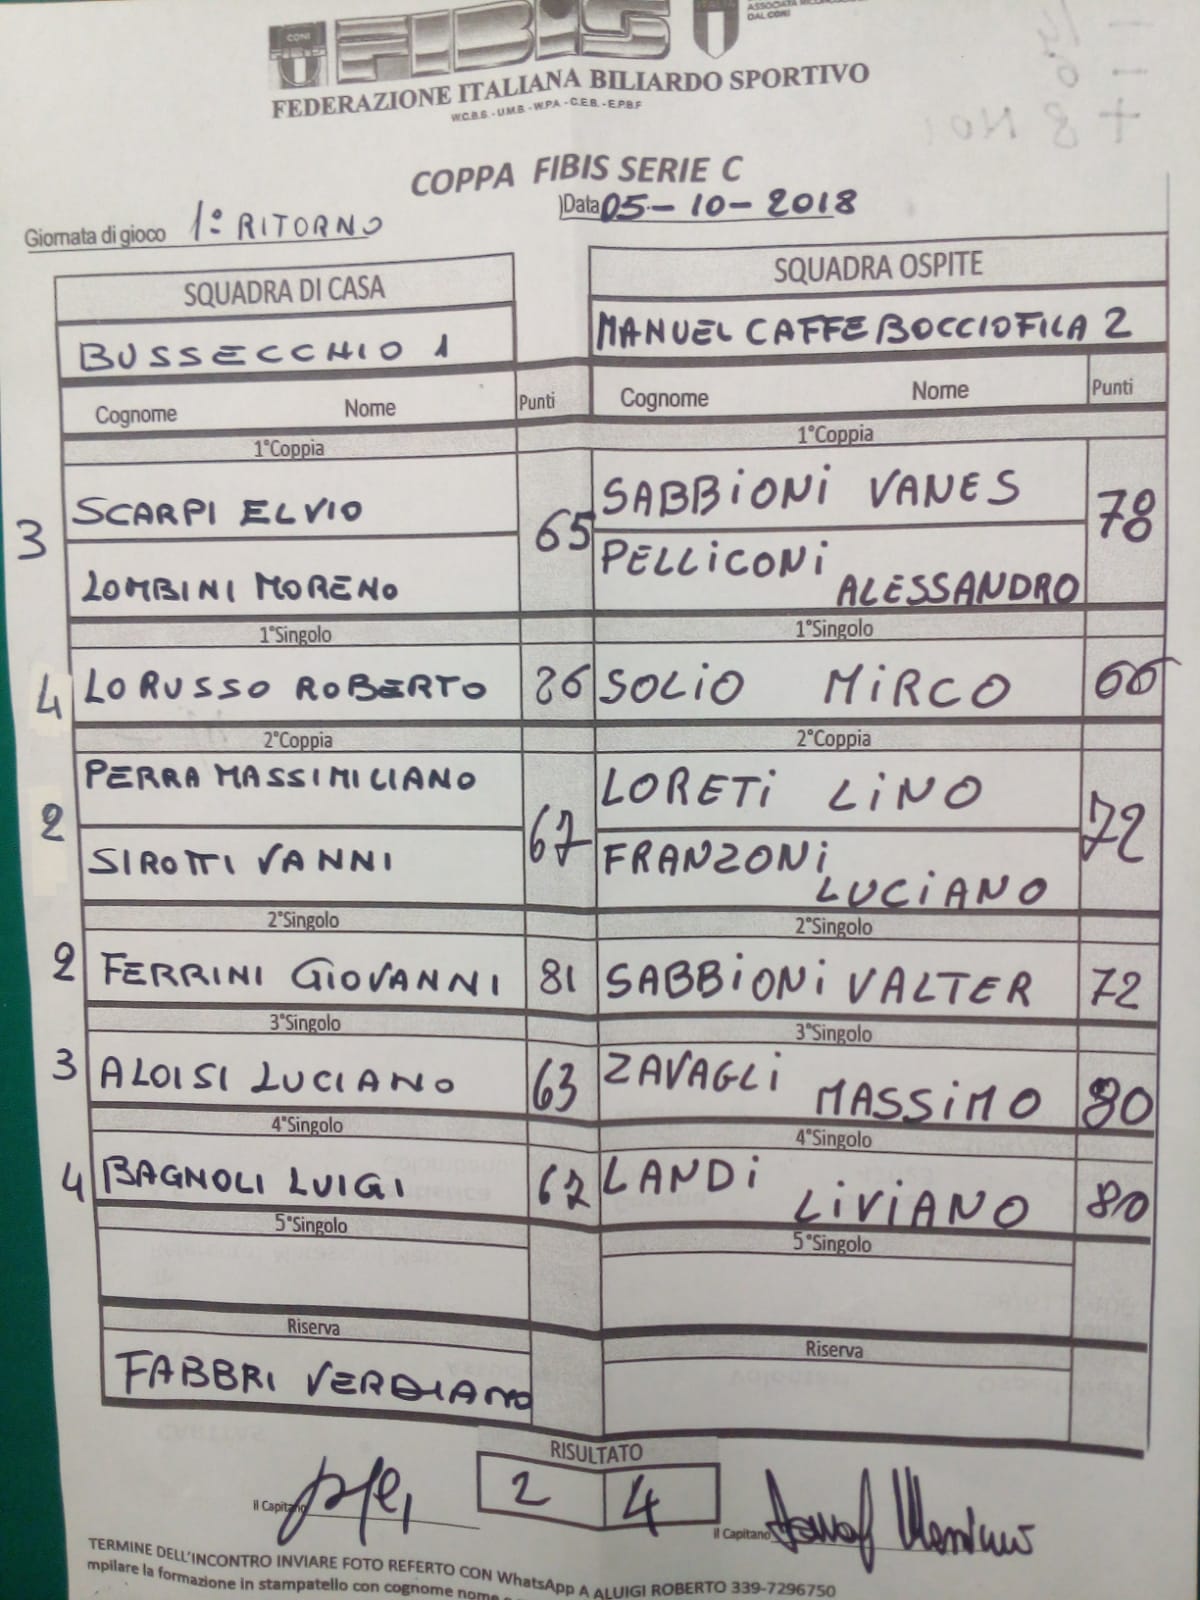 CONI
FIBIS
ITALIA
DAL CONI
FEDERAZIONE ITALIANA BILIARDO SPORTIVO
W.C.B.S. - U.M.B. - W.P.A. - C.E.B. - E.P.B.F
COPPA FIBIS SERIE C
Giornata di gioco 1° RITORNO
)Data 05-10-2018
SQUADRA DI CASA SQUADRA OSPITE
BUSSECCHIO 1 MANUEL CAFFE BOCCIOFILA 2
Cognome Nome Punti Cognome Nome Punti
1°Coppia 1°Coppia
3 SCARPI ELVIO 65 SABBIONI VANES 78
LOMBINI MORENO PELLICONI ALESSANDRO
1°Singolo 1°Singolo
4 LORUSSO ROBERTO 86 SOLIO MIRCO 66
2°Coppia 2°Coppia
2 PERRA MASSIMILIANO 67 LORETI LINO 72
SIROTTI VANNI FRANZONI LUCIANO
2°Singolo 2°Singolo
2 FERRINI GIOVANNI 81 SABBIONI VALTER 72
3°Singolo 3°Singolo
3 ALOISI LUCIANO 63 ZAVAGLI MASSIMO 80
4°Singolo 4°Singolo
4 BAGNOLI LUIGI 67 LANDI LIVIANO 80
5°Singolo 5°Singolo
Riserva Riserva
FABBRI VERDIANO
RISULTATO
2 4
il Capitano il Capitano
TERMINE DELL'INCONTRO INVIARE FOTO REFERTO CON WhatsApp A ALUIGI ROBERTO 339-7296750
mpilare la formazione in stampatello con cognome nome